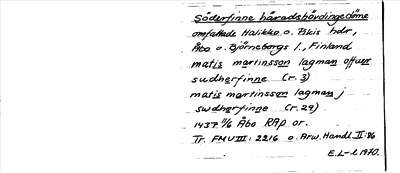 Söderfinne häradshövdingedöme
omfattade Halikko o. Pikis hdr,
Åbo o. Björneborgs l., Finland
matis martinsson lagman offuer
swdherfinne (r. 3)
matis martinsson lagman j
swdherfinne (r. 29)
1437 11/6 Åbo RAp or.
Tr. FMU III: 2216 o. Arw. Handl. II: 86
E. L-l 1970.